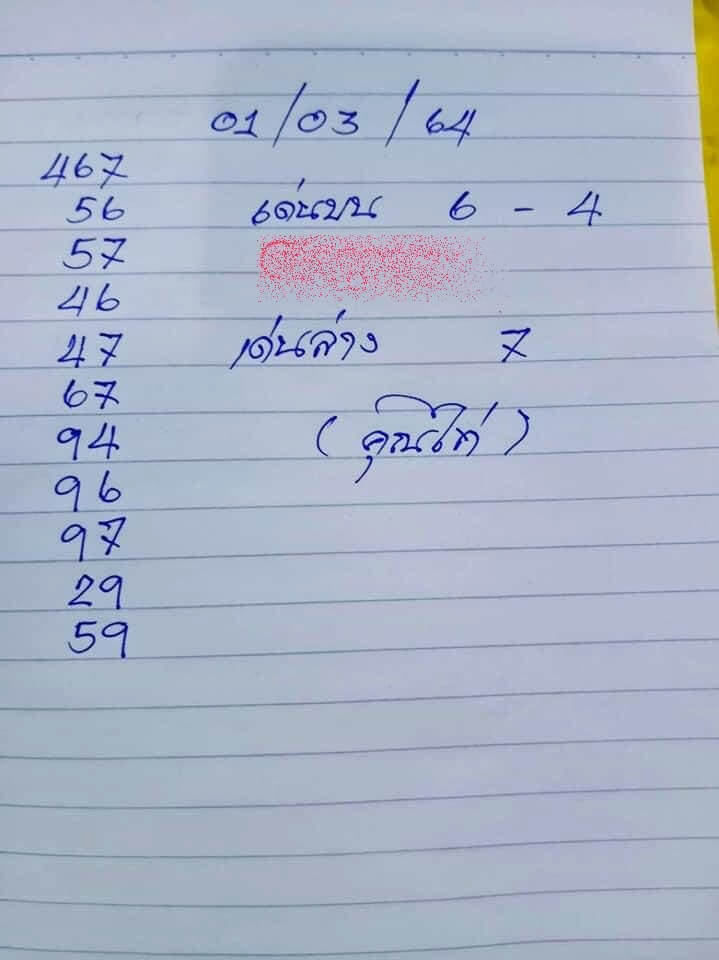 01/03/64
467
56 เด่นบน 6 - 4
57
46
47 เด่นล่าง 7
67
94 (คุณไก่)
96
97
29
59